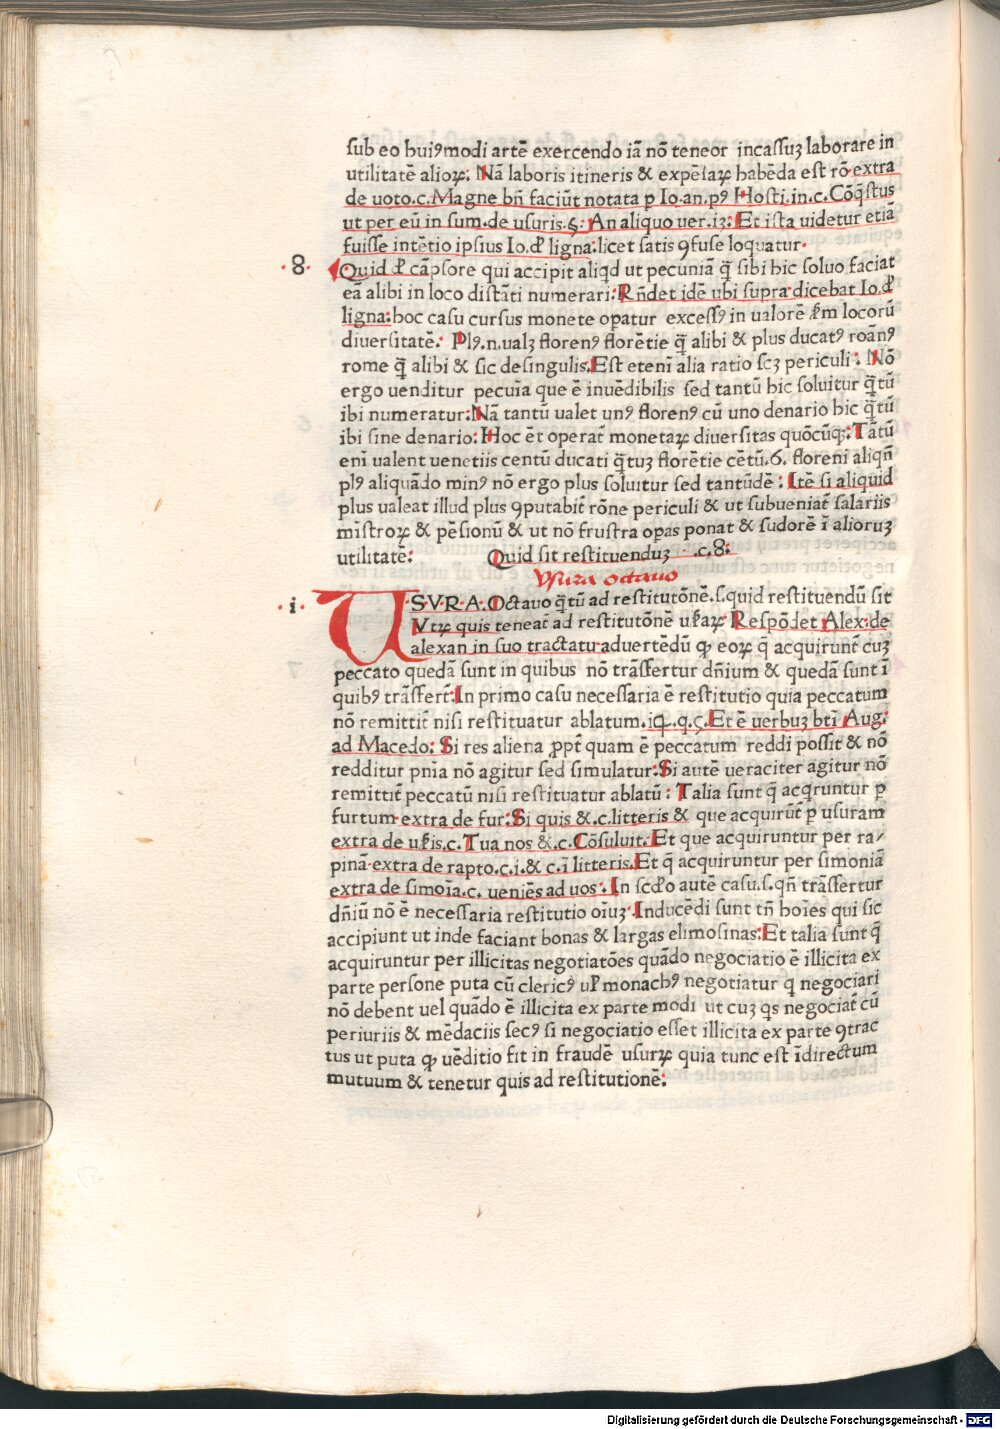 sub eo huiꝰmodi artē exercendo iā nō teneor incassuȝ laborare in
utilitatē alioꝝ: Nā laboris itineris & expēsaꝝ habēda est rō extra
de uoto.c. Magne bn̄ faciūt notata p Io.an.pꝰ Hosti.in.c. Cōq̄stus
ut per eū in sum.de usuris.§: An aliquo uer.i3: Et ista uidetur etiā
fuisse intētio ipsius Io.đ ligna: licet satis ꝯfuse loquatur.
.8. Quid đ cāpsore qui accipit aliqd ut pecuniā q̄ sibi hic soluo faciat
eā alibi in loco distāti numerari: Rn̄det idē ubi supra dicebat Io.đ
ligna: hoc casu cursus monete opatur excessꝰ in ualorē ẜm locorū
diuersitatē: Plꝰ.n.ualȝ florenꝰ florētie q̄ alibi & plus ducatꝰ roānꝰ
rome q̄ alibi & sic de singulis. Est etenī alia ratio scȝ periculi: Nō
ergo uenditur pecuīa que ē inuēdibilis sed tantū hic soluitur q̄tū
ibi numeratur: Nā tantū ualet unꝰ florenꝰ cū uno denario hic q̄tū
ibi sine denario: Hoc ēt operat̄ monetaꝝ diuersitas quōcūqȝ: Tātū
enī ualent uenetiis centū ducati q̄tuȝ florētie cētū.6. floreni aliqn̄
plꝰ aliquādo minꝰ nō ergo plus soluitur sed tantūdē: Itē si aliquid
plus ualeat illud plus ꝯputabit̄ rōne periculi & ut subueniat̄ salariis
mīstroꝝ & pēsionū & ut nō frustra opas ponat & sudorē ī alioruȝ
utilitatē: Quid sit restituenduȝ .c.8:
Vsura octauo
.i. USVRA. Octauo q̄tū ad restitutōnē.s.quid restituendū sit
Vtꝝ quis teneat̄ ad restitutōnē uẜaꝝ Respōdet Alex.de
alexan in suo tractatu aduertēdū ꝙ eoꝝ q̄ acquirunt̄ cuȝ
peccato quedā sunt in quibus nō trāsfertur dn̄ium & quedā sunt ī
quibꝰ trāsfert̄: In primo casu necessaria ē restitutio quia peccatum
nō remittit̄ nisi restituatur ablatum.i4.q.ς. Et ē uerbuȝ bt̄i Aug:
ad Macedo: Si res aliena ꝓpt̄ quam ē peccatum reddi possit & nō
redditur pnīa nō agitur sed simulatur: Si autē ueraciter agitur nō
remittit̄ peccatū nisi restituatur ablatū: Talia sunt q̄ acqruntur ꝑ
furtum extra de fur: Si quis &.c.litteris & que acquirūt̄ ꝑ usuram
extra de uẜis.c. Tua nos &.c. Cōsuluit: Et que acquiruntur per ra/
pinā extra de rapto.c.i.& c.ī litteris. Et q̄ acquiruntur per simoniā
extra de simoīa.c. ueniēs ad uos: In scđo autē casu.s.qn̄ trāsfertur
dn̄iū nō ē necessaria restitutio oīuȝ. Inducēdi sunt tn̄ hoīes qui sic
accipiunt ut inde faciant bonas & largas elimosinas: Et talia sunt q̄
acquiruntur per illicitas negotiatōes quādo negociatio ē illicita ex
parte persone puta cū clericꝰ ul̄ monachꝰ negotiatur q negociari
nō debent uel quādo ē illicita ex parte modi ut cuȝ qs negociat̄ cū
periuriis & mēdaciis secꝰ si negociatio esset illicita ex parte ꝯtrac
tus ut puta ꝙ uēditio fit in fraudē usurꝝ quia tunc est īdirectum
mutuum & tenetur quis ad restitutionē:
Digitalisierung gefördert durch die Deutsche Forschungsgemeinschaft - DFG